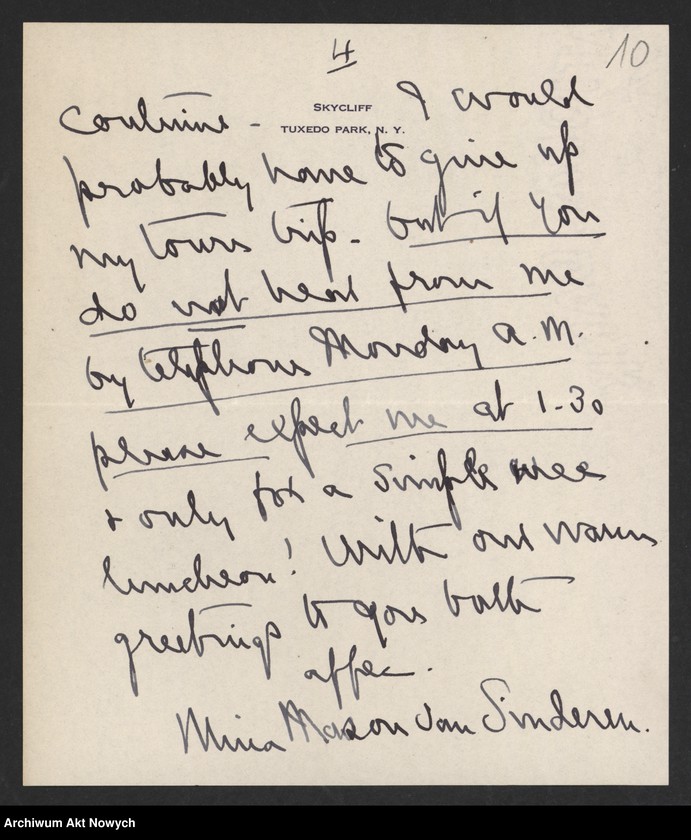 4
10
SKYCLIFF
TUXEDO PARK, N. Y.
continue - I would
probably have to give up
my tours trip - but if you
do not hear from me
by telephone Monday A.M.
please expect me at 1-30
& only for a simple wee
luncheon! With our warm
greetings to you both
affec.
Mina Mason Van Sinderen.
Archiwum Akt Nowych